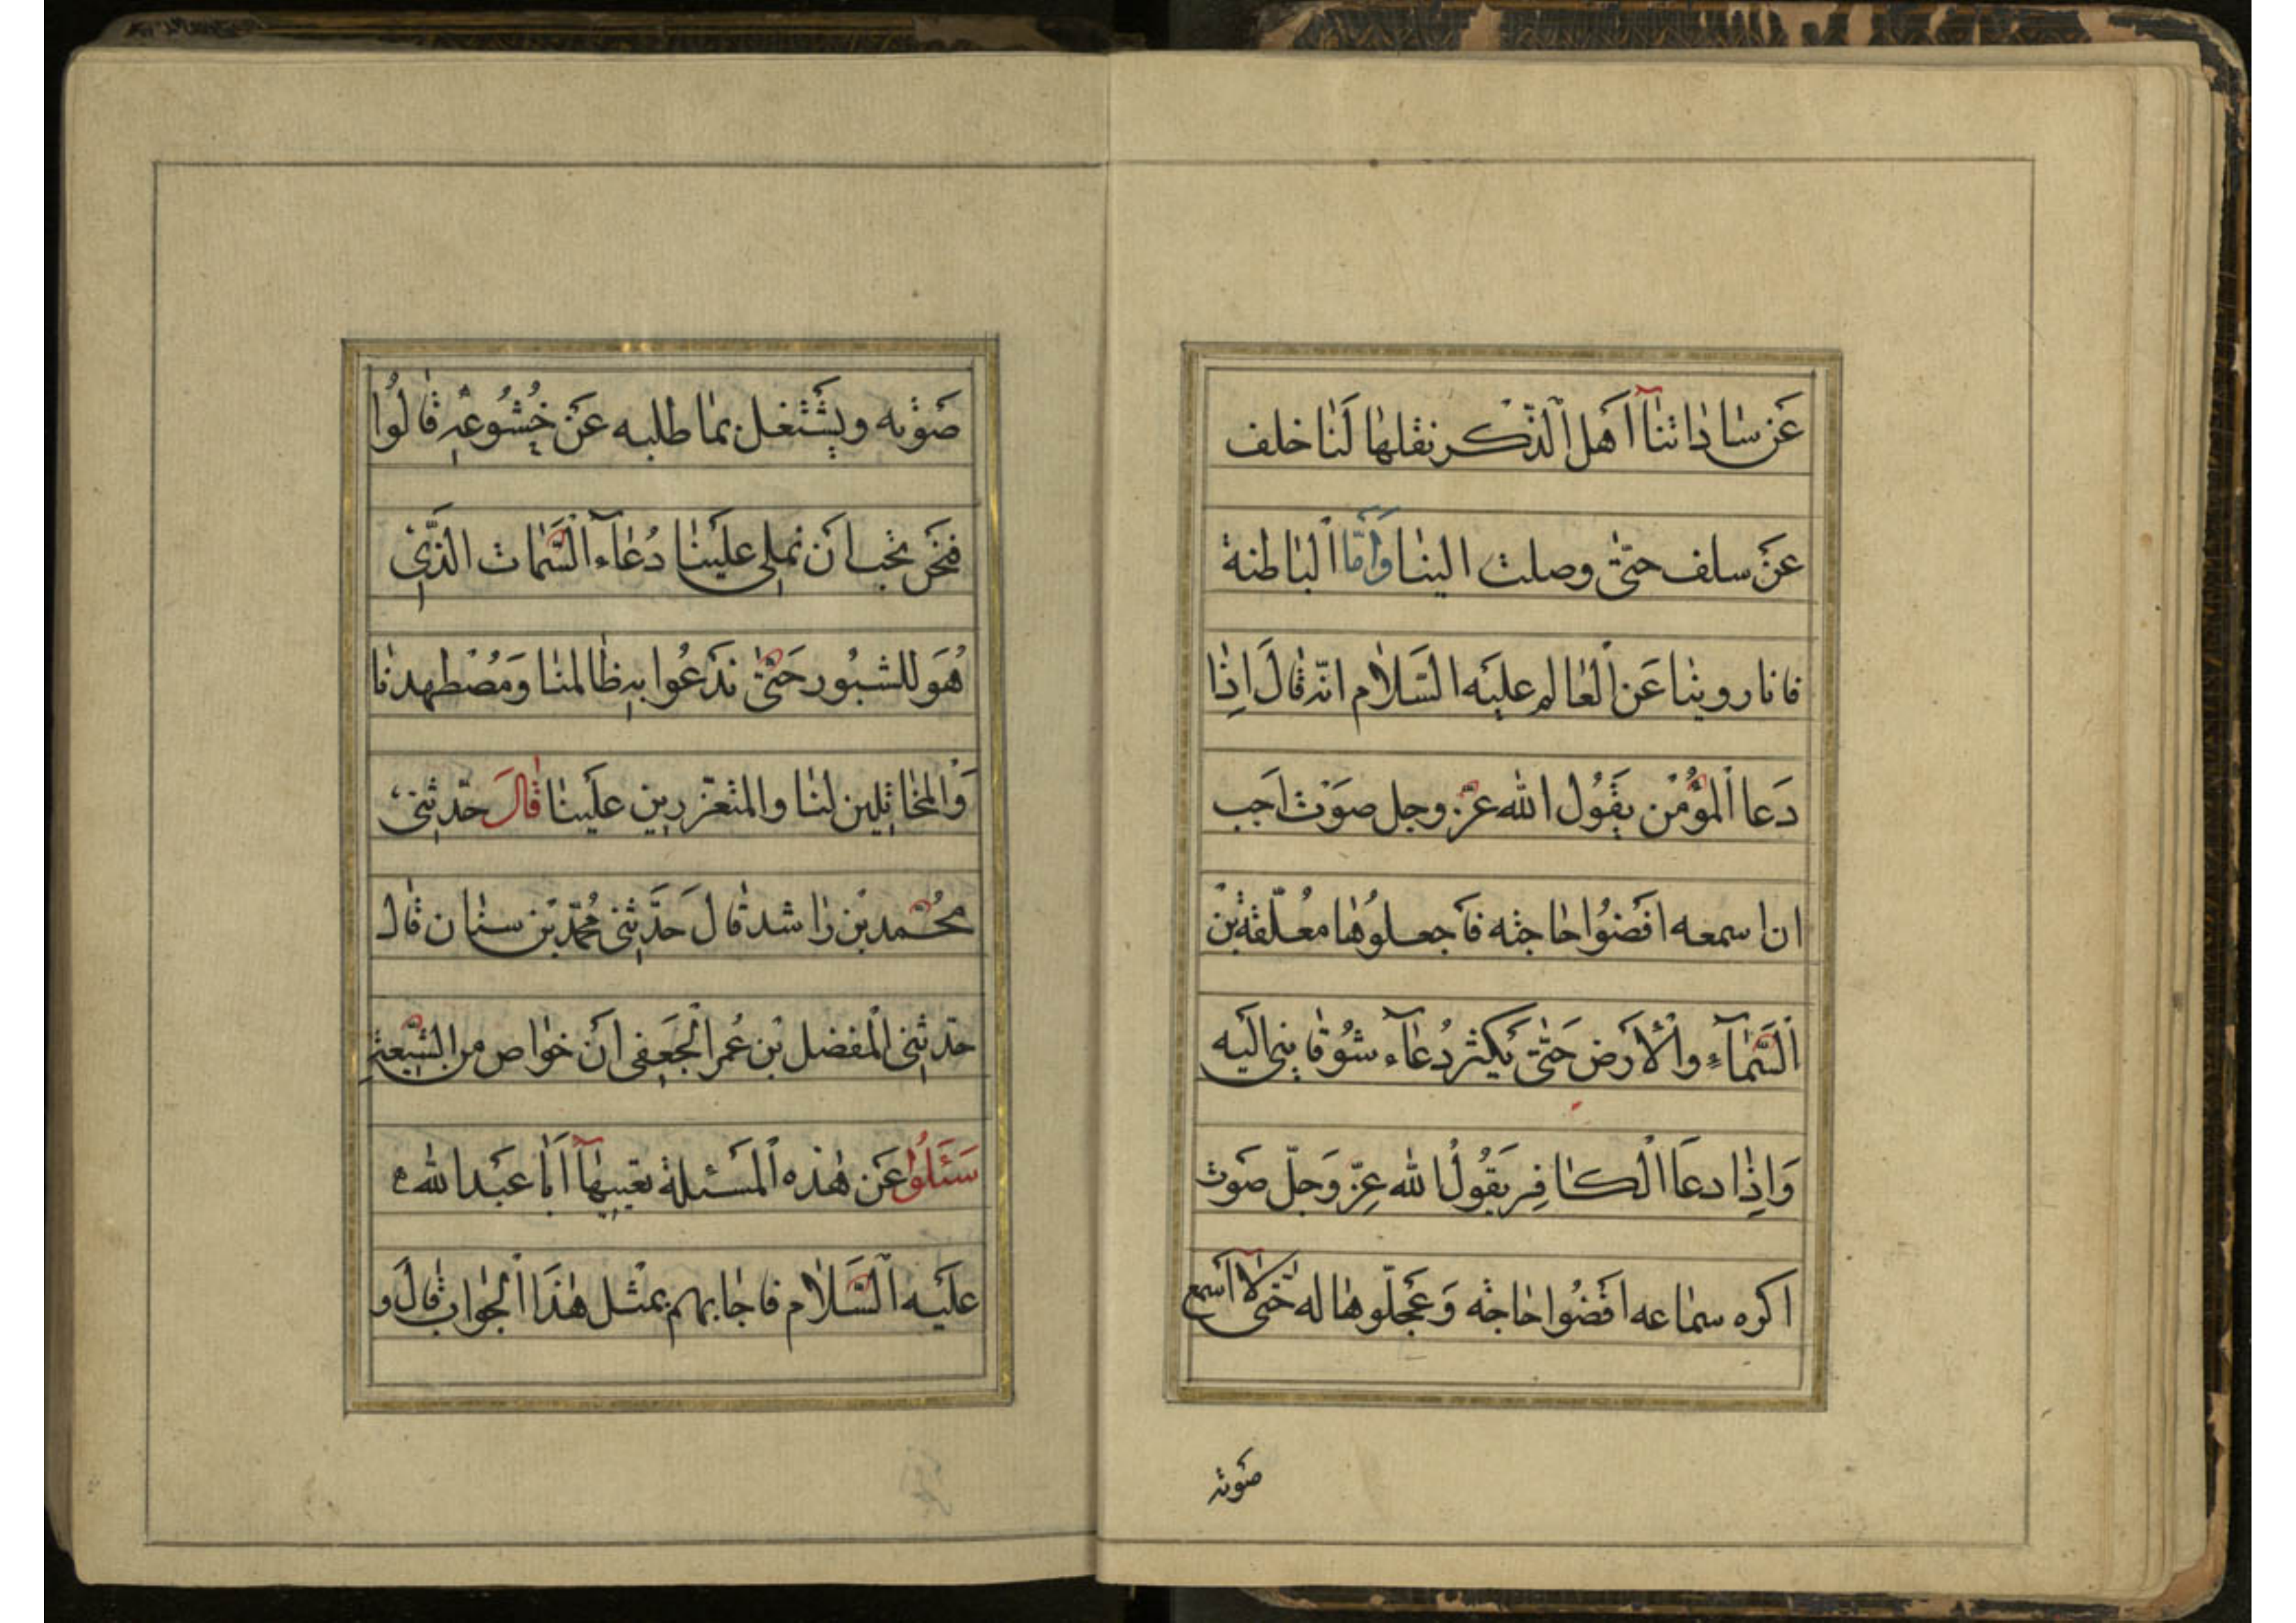 عَن سٰادٰاتنٰآ اَهل الذّكر نقلهٰا لَنٰا خلف
عَن سلف حتّىٰ وصلت الينٰا وَامّا البٰاطنة
فانا روينٰا عَن العٰالم عليَه السَّلٰام انّه قٰالَ اِذٰا
دَعا المؤُمْن يَقُول الله عزّ وجل صَوْت اَحَب
ان اسمعه اقضُوا حٰاجته فاَجعلوُهٰا معُلّقة بَيْن
السَّمٰآءِ والْاَرض حَتّىٰ يكَثر دُعٰآء شوُقٰا مِنى اليَه
وَاِذٰا دعَا الْكٰافِر يَقوُلُ الله عزّ وَجلّ صَوت
اكره سمٰاعه اقَضُوا حٰاجته وَعَجّلوهٰا له حَتّىٰ لٰا اَسمع
صَوته
صَوْته ويشَتغل بمٰا طلبه عَن خُشُوعِه قٰالوُا
فنحَن نحب ان تملِى عليَنٰا دُعٰآء السَّمٰات الذَّىِ
هُوَ للشبُور حَتّىٰ ندَعُوا بِه ظٰالمنٰا وَمُضْطهدنٰا
وَالمخٰاتِلين لنٰا والمتعزّزين علَينٰا قٰالَ حدّثنِى
محُمّد بْن رٰاشد قٰالَ حَدَّثنِى مُحمّد بْن سنٰان قٰال
حدّثنِى المْفضل بْن عُمر الْجُعَفى اَن خوٰاص من الشّيِعَةِ
سَئَلوُا عَن هٰذه المَسئلة بعَينِهٰآ اَبٰا عَبد الله ع
عليَه السَّلٰام فاجٰابهم بمثْل هٰذَا الجوٰاب قٰالَ و